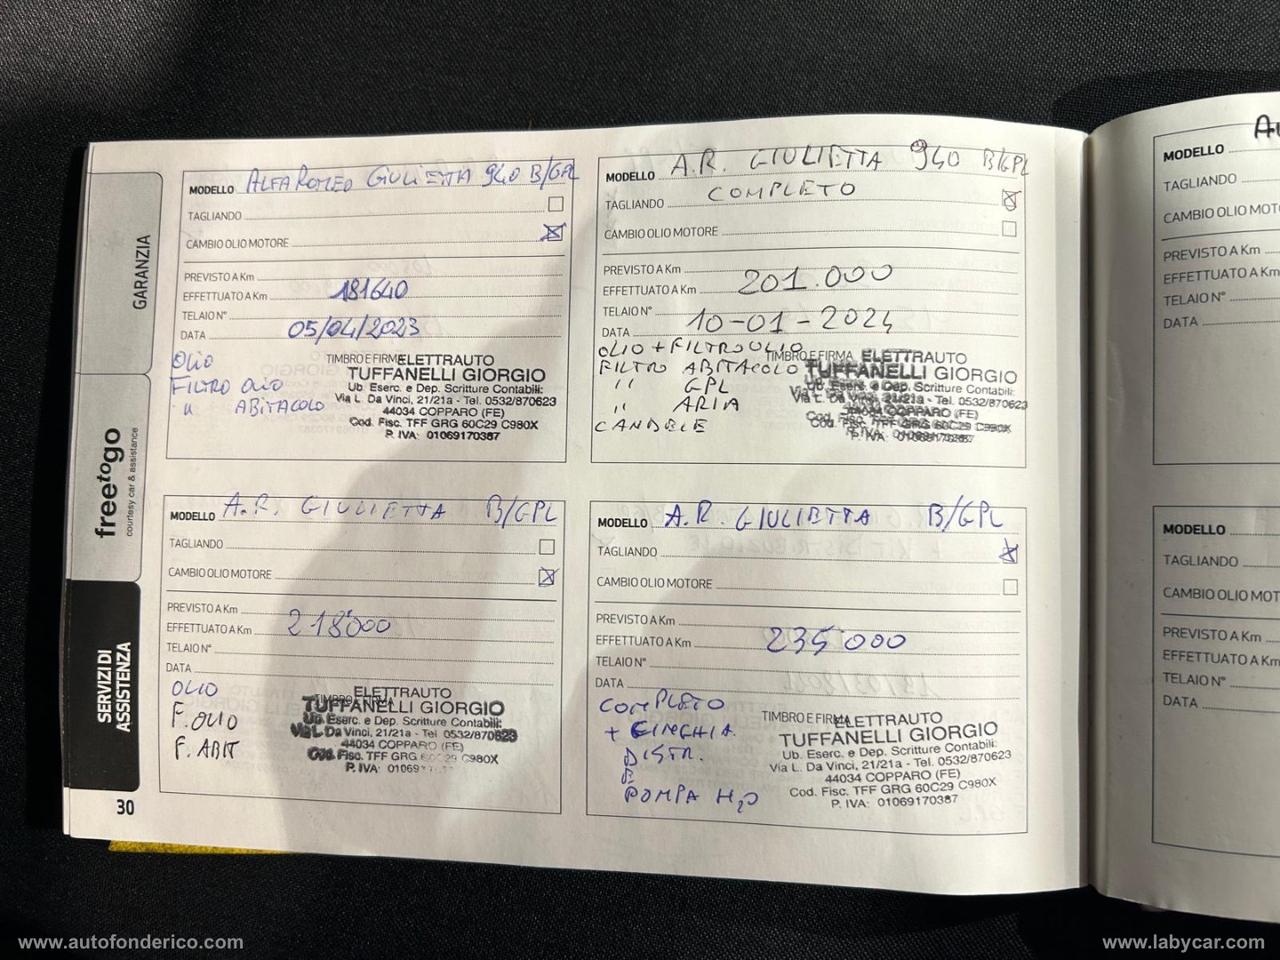 GARANZIA
freetogo
courtesy car & assistance
SERVIZI DI
ASSISTENZA
30
MODELLO ALFA ROMEO GIULIETTA 940 B/GPL
TAGLIANDO
CAMBIO OLIO MOTORE
PREVISTO A Km
EFFETTUATO A Km 181640
TELAIO N°
DATA 05/04/2023
TIMBRO E FIRMA
OLIO
FILTRO OLIO
" ABITACOLO
ELETTRAUTO
TUFFANELLI GIORGIO
Ub. Eserc. e Dep. Scritture Contabili:
Via L. Da Vinci, 21/21a - Tel. 0532/870623
44034 COPPARO (FE)
Cod. Fisc. TFF GRG 60C29 C980X
P. IVA: 01069170387
MODELLO A.R. GIULIETTA 940 B/GPL
COMPLETO
TAGLIANDO
CAMBIO OLIO MOTORE
PREVISTO A Km
EFFETTUATO A Km 201.000
TELAIO N°
DATA 10-01-2024
TIMBRO E FIRMA
OLIO + FILTRO OLIO
FILTRO ABITACOLO
" GPL
" ARIA
CANDELE
ELETTRAUTO
TUFFANELLI GIORGIO
Ub. Eserc. e Dep. Scritture Contabili:
Via L. Da Vinci, 21/21a - Tel. 0532/870623
44034 COPPARO (FE)
Cod. Fisc. TFF GRG 60C29 C980X
P. IVA: 01069170387
MODELLO A.R. GIULIETTA B/GPL
TAGLIANDO
CAMBIO OLIO MOTORE
PREVISTO A Km
EFFETTUATO A Km 218'000
TELAIO N°
DATA
TIMBRO E FIRMA
OLIO
F. OLIO
F. ABIT
ELETTRAUTO
TUFFANELLI GIORGIO
Ub. Eserc. e Dep. Scritture Contabili:
Via L. Da Vinci, 21/21a - Tel. 0532/870623
44034 COPPARO (FE)
Cod. Fisc. TFF GRG 60C29 C980X
P. IVA: 01069
MODELLO A.R. GIULIETTA B/GPL
TAGLIANDO
CAMBIO OLIO MOTORE
PREVISTO A Km
EFFETTUATO A Km 235'000
TELAIO N°
DATA
TIMBRO E FIRMA
COMPLETO
+ CINGHIA
DISTR.
E
POMPA H2O
ELETTRAUTO
TUFFANELLI GIORGIO
Ub. Eserc. e Dep. Scritture Contabili:
Via L. Da Vinci, 21/21a - Tel. 0532/870623
44034 COPPARO (FE)
Cod. Fisc. TFF GRG 60C29 C980X
P. IVA: 01069170387
MODELLO
TAGLIANDO
CAMBIO OLIO MOTO
PREVISTO A Km
EFFETTUATO A Km
TELAIO N°
DATA
MODELLO
TAGLIANDO
CAMBIO OLIO MOT
PREVISTO A Km
EFFETTUATO A Km
TELAIO N°
DATA
www.autofonderico.com
www.labycar.com